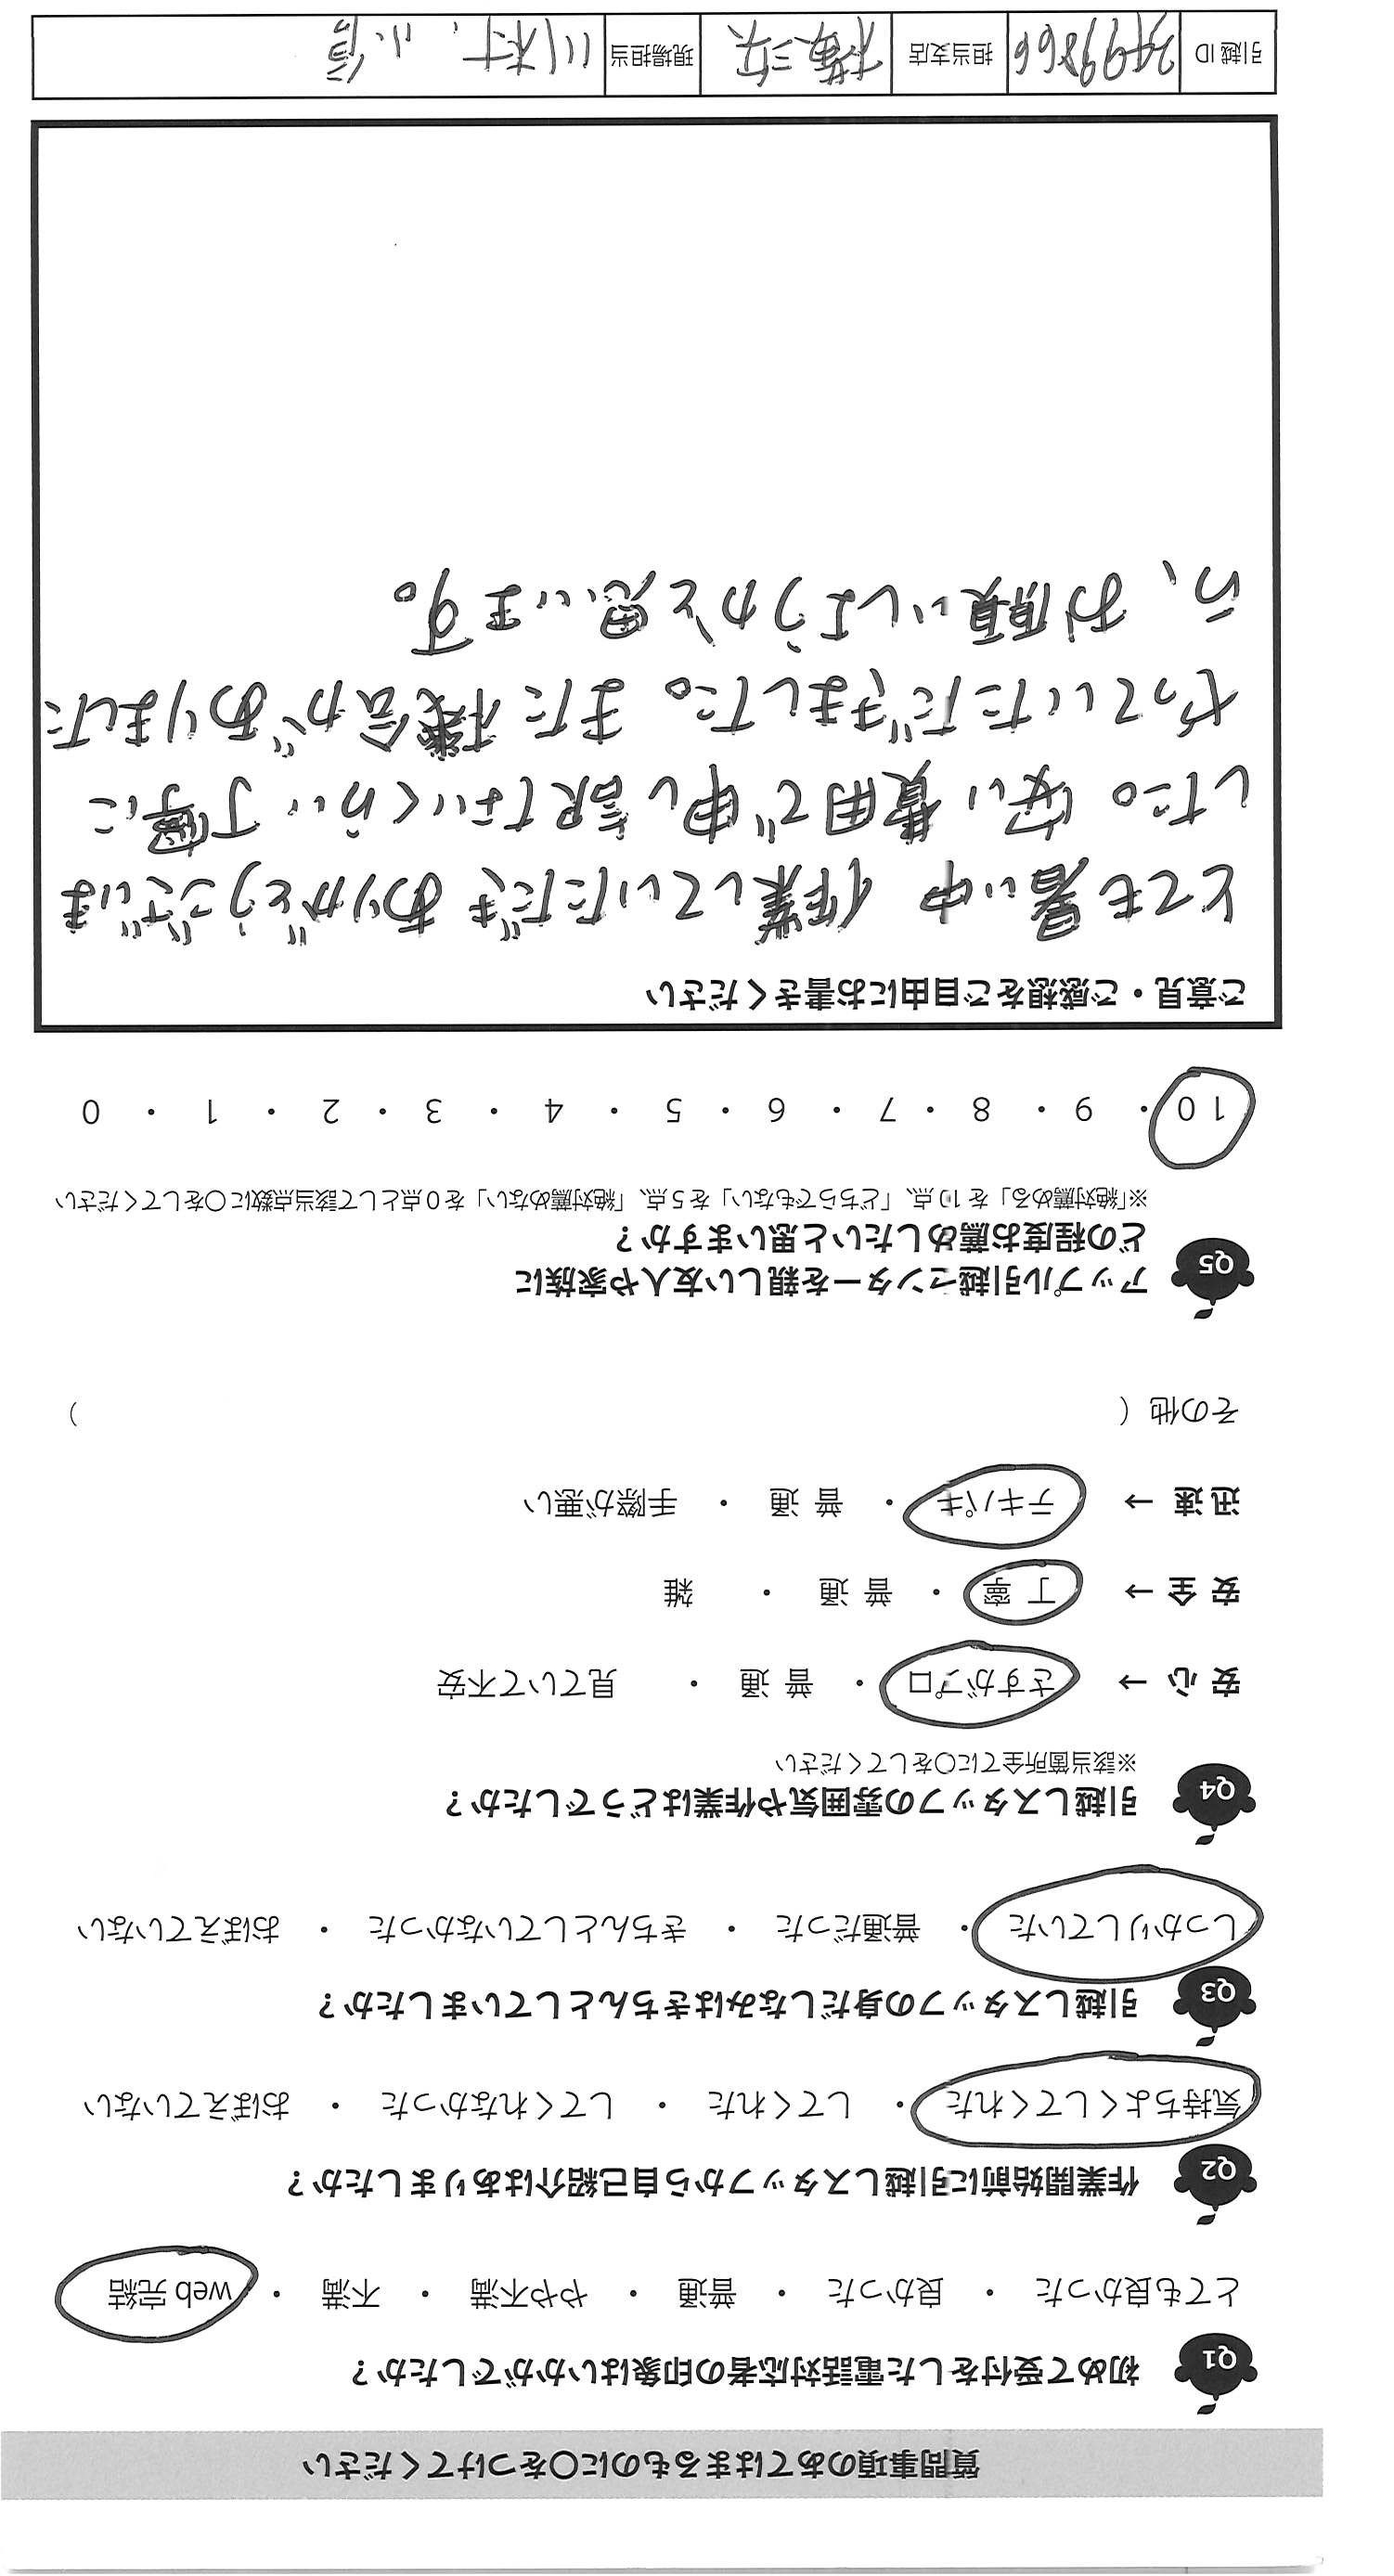 質問事項のあてはまるものに〇をつけてください
Q1 初めて受付をした電話対応者の印象はいかがでしたか？
とても良かった ・ 良かった ・ 普通 ・ やや不満 ・ 不満 ・ web 完結
Q2 作業開始前に引越しスタッフから自己紹介はありましたか？
気持ちよくしてくれた ・ してくれた ・ してくれなかった ・ おぼえていない
Q3 引越しスタッフの身だしなみはきちんとしていましたか？
しっかりしていた ・ 普通だった ・ きちんとしていなかった ・ おぼえていない
Q4 引越しスタッフの雰囲気や作業はどうでしたか？
※該当箇所全てに〇をしてください
安心 → さすがプロ ・ 普通 ・ 見ていて不安
安全 → 丁寧 ・ 普通 ・ 雑
迅速 → テキパキ ・ 普通 ・ 手際が悪い
その他（ ）
Q5 アップル引越センターを親しい友人や家族に
どの程度お薦めしたいと思いますか？
※「絶対薦める」を10点、「どちらでもない」を5点、「絶対薦めない」を0点として該当点数に〇をしてください
10 ・ 9 ・ 8 ・ 7 ・ 6 ・ 5 ・ 4 ・ 3 ・ 2 ・ 1 ・ 0
ご意見・ご感想をご自由にお書きください
とても暑い中 作業していただきありがとうございま
した。安い費用で申し訳ないくらい丁寧に
やっていただきました。また機会がありました
ら、お願いしようかと思います。
引越ID 担当支店 横浜 現場担当 川村、小